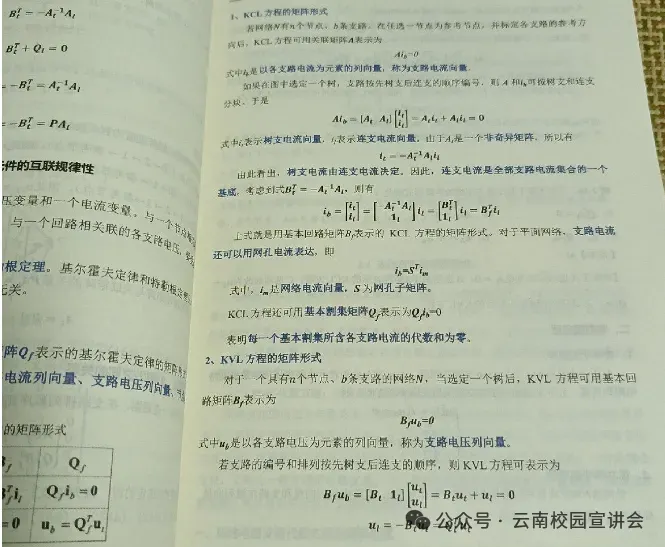 B_t^T = -A_t^{-1}A_l
B_t^T + Q_l = 0
= -B_t^T = A_t^{-1}A_l
= -B_t^T = PA_l
件的互联规律性
压变量和一个电流变量。与一个节
与一个回路相关联的各支路电压
根定理。基尔霍夫定律和特勒根
无关。
阵Q_f表示的基尔霍夫定律的矩阵
电流列向量、支路电压列向量、
的矩阵形式
B_f Q_f
B_f^T i_l Q_f i_b = 0
= 0 u_b = Q_f^T u_t
1、KCL 方程的矩阵形式
若网络N有n个节点、b条支路。次任选一节点为参考节点,并标定各支路的参考方
向后,KCL 方程可用关联矩阵A表示为
Ai_b=0
式中i_b是以各支路电流为元素的列向量,称为支路电流向量。
如果在图中选定一个树,支路按先树支后连支的顺序编号,则 A 和i_b可按树支和连支
分块,于是
Ai_b = [A_t A_l] [i_t i_l] = A_t i_t + A_l i_l = 0
式中i_t表示树支电流向量,i_l表示连支电流向量。由于A_t是一个非奇异矩阵,所以有
i_t = -A_t^{-1}A_l i_l
由此看出,树支电流由连支电流决定。因此,连支电流是全部支路电流集合的一个
基底。考虑到式B_t^T = -A_t^{-1}A_l,则有
i_b = [i_t i_l] = [-A_t^{-1}A_l 1_l] i_l = [B_t^T 1_l] i_l = B_f^T i_l
上式就是用基本回路矩阵B_f表示的 KCL 方程的矩阵形式。对于平面网络,支路电流
还可以用网孔电流表达,即
i_b=S^T i_m
式中,i_m是网络电流向量,S 为网孔子矩阵。
KCL方程还可用基本割集矩阵Q_f表示为Q_f i_b=0
表明每一个基本割集所含各支路电流的代数和为零。
2、KVL 方程的矩阵形式
对于一个具有n个节点、b条支路的网络N,当选定一个树后,KVL 方程可用基本回
路矩阵B_f表示为
B_f u_b=0
式中u_b是以各支路电压为元素的列向量,称为支路电压列向量。
若支路的编号和排列按先树支后连支的顺序,则 KVL 方程可表示为
B_f u_b = [B_t 1_l] [u_t u_l] = B_t u_t + u_l = 0
u_l = -B_t u_t
公众号 · 云南校园宣讲会